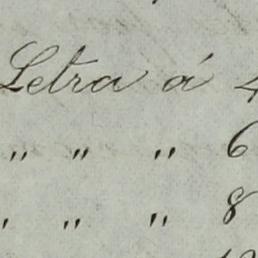 Letra á 4
" " " 6
" " " 8